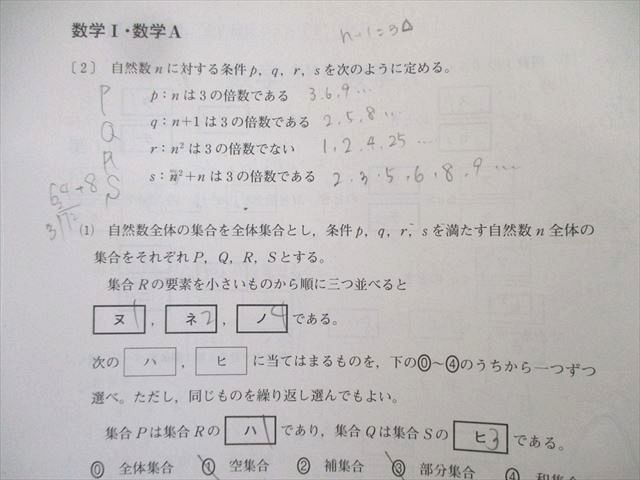 数学Ⅰ・数学A
n-1=3△
〔2〕 自然数nに対する条件p，q，r，sを次のように定める。
P p：nは3の倍数である 3.6.9…
Q q：n+1は3の倍数である 2.5.8…
R r：n²は3の倍数でない 1.2.4.25…
S s：n²+nは3の倍数である 2.3.5.6.8.9…
64+8
3)72
(1) 自然数全体の集合を全体集合とし，条件p，q，r，sを満たす自然数n全体の
集合をそれぞれP，Q，R，Sとする。
集合Rの要素を小さいものから順に三つ並べると
ヌ 1 ， ネ 2 ， ノ 4 である。
次の ハ ， ヒ に当てはまるものを，下の⓪～④のうちから一つずつ
選べ。ただし，同じものを繰り返し選んでもよい。
集合Pは集合Rの ハ 1 であり，集合Qは集合Sの ヒ 3 である。
⓪ 全体集合 ① 空集合 ② 補集合 ③ 部分集合 ④ 和集合